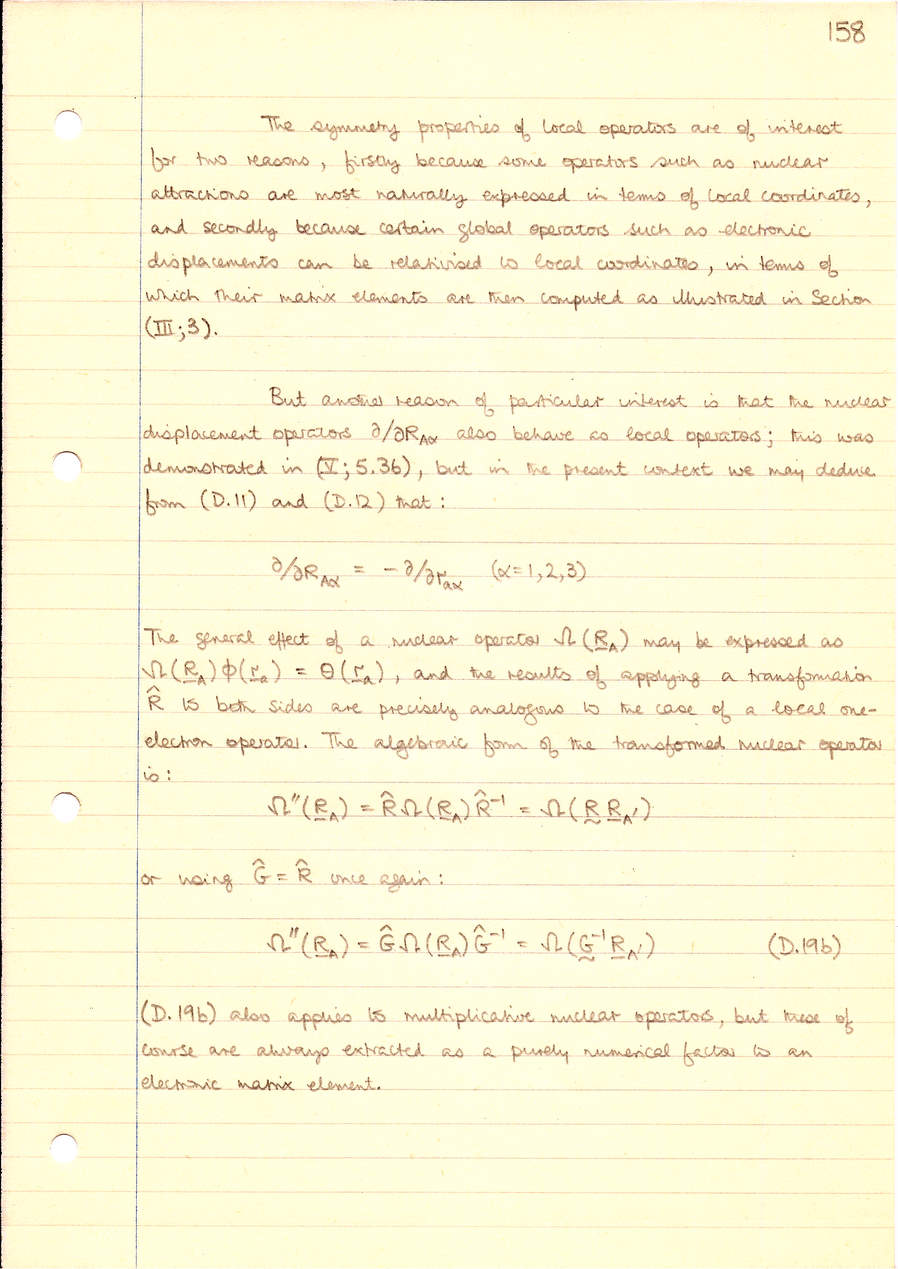 158
The symmetry properties of local operators are of interest
for two reasons, firstly because some operators such as nuclear
attractions are most naturally expressed in terms of local coordinates,
and secondly because certain global operators such as electronic
displacements can be relativised to local coordinates, in terms of
which their matrix elements are then computed as illustrated in Section
(III;3).
But another reason of particular interest is that the nuclear
displacement operators ∂/∂R_Aα also behave as local operators; this was
demonstrated in (V;5.36), but in the present context we may deduce
from (D.11) and (D.12) that:
∂/∂R_Aα = -∂/∂r_aα (α=1,2,3)
The general effect of a nuclear operator Ω(R_A) may be expressed as
Ω(R_A)Φ(r_a) = Θ(r_a), and the results of applying a transformation
R̂ to both sides are precisely analogous to the case of a local one-
electron operator. The algebraic form of the transformed nuclear operator
is:
Ω″(R_A) = R̂Ω(R_A)R̂⁻¹ = Ω(R R_A′)
or using Ĝ = R̂ once again:
Ω″(R_A) = ĜΩ(R_A)Ĝ⁻¹ = Ω(G⁻¹R_A′) (D.19b)
(D.19b) also applies to multiplicative nuclear operators, but these of
course are always extracted as a purely numerical factor to an
electronic matrix element.